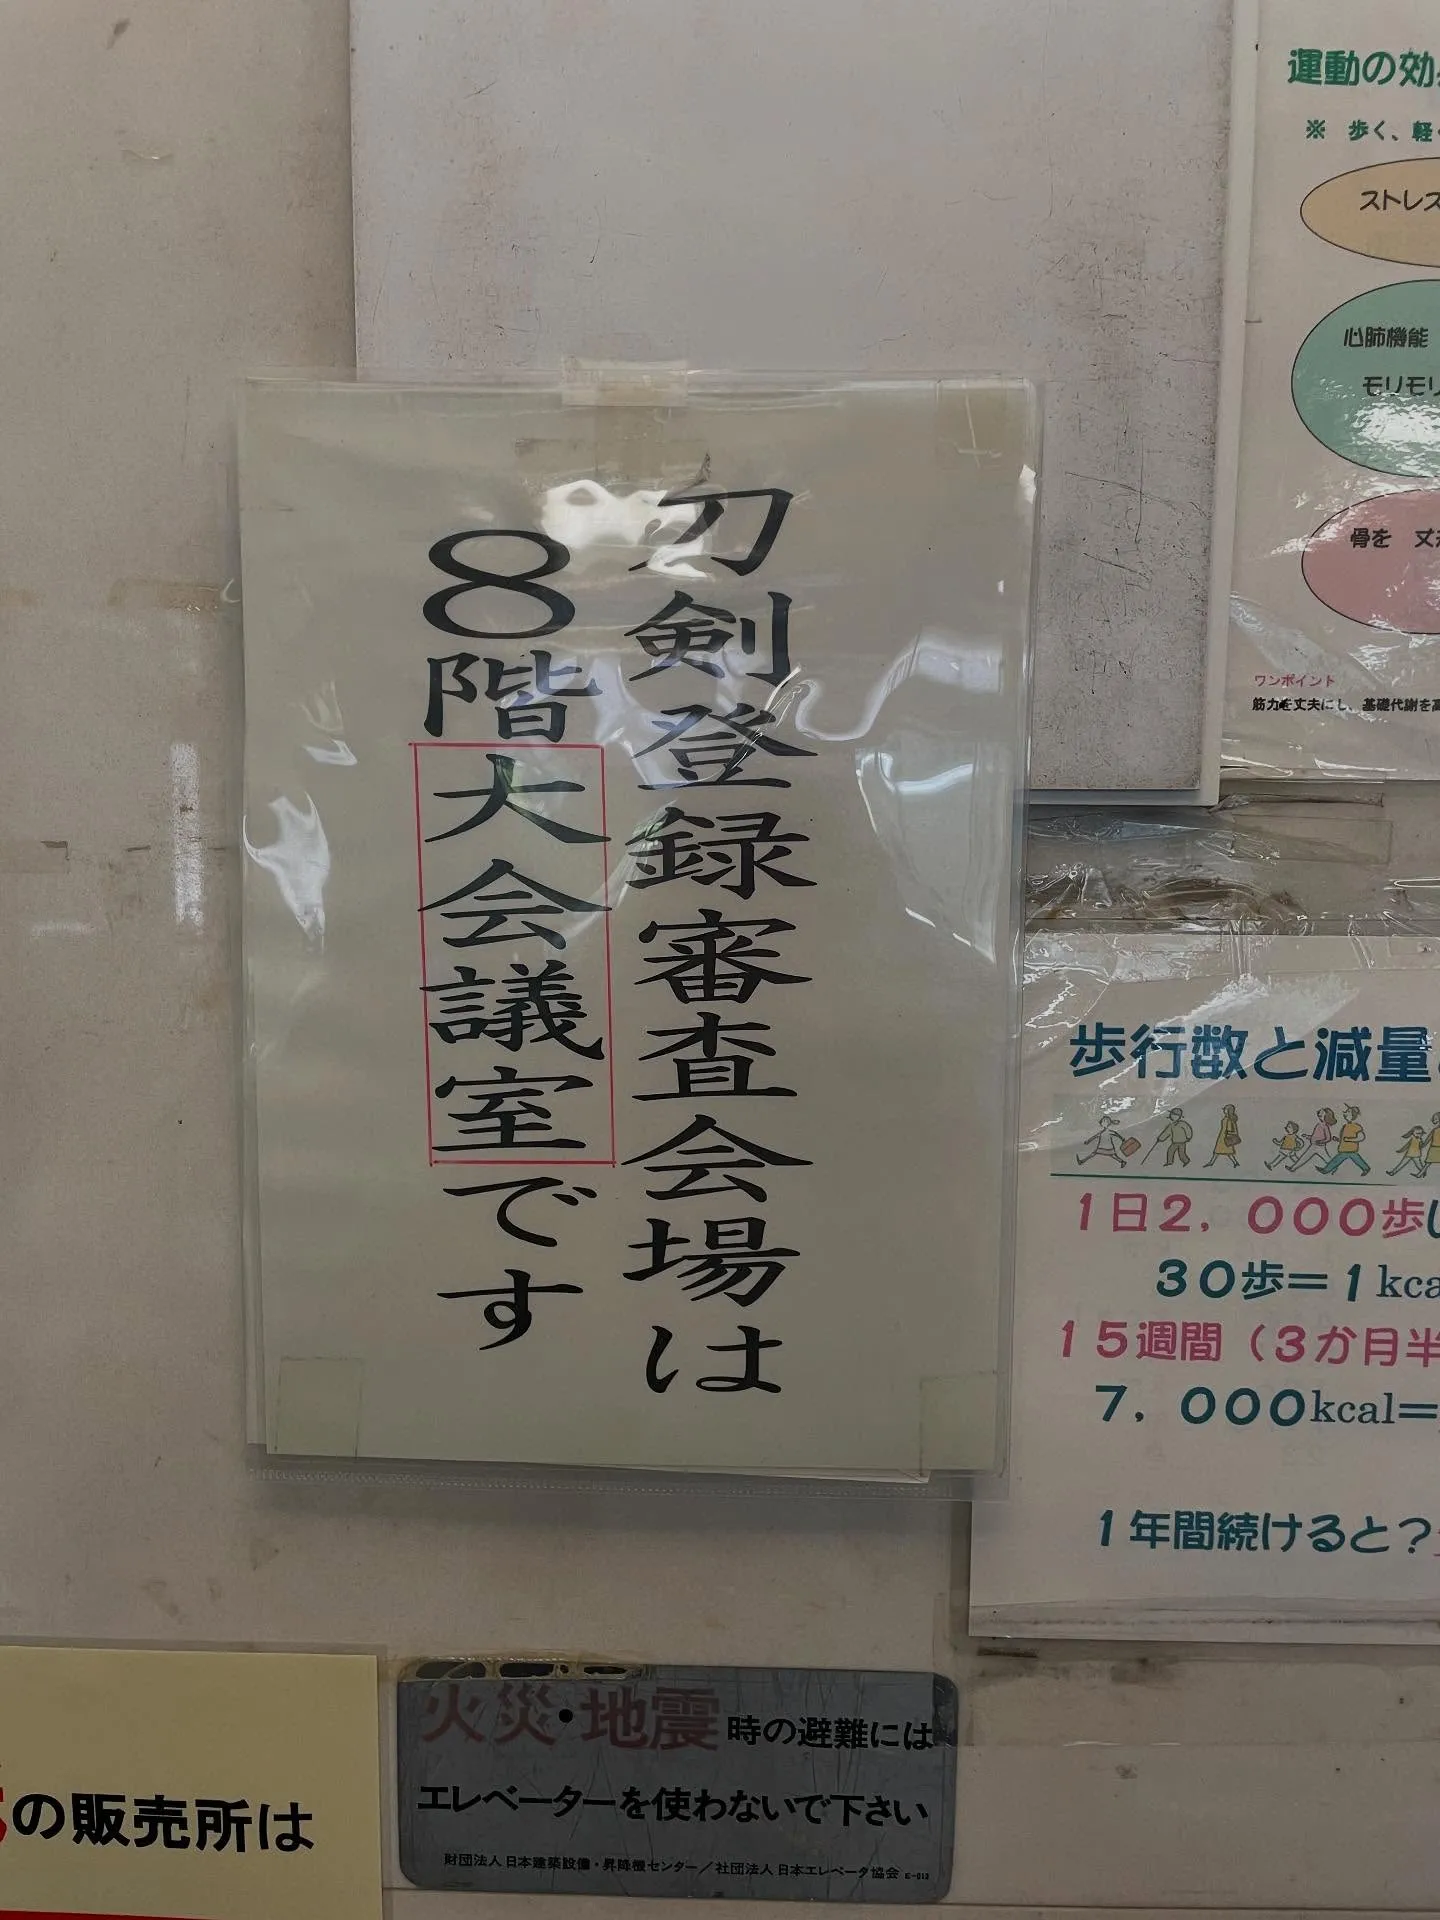 刀剣登録審査会場は
8階大会議室です
運動の効
※　歩く、軽
ストレス
心肺機能
モリモリ
骨を　丈
ワンポイント
筋力を丈夫にし、基礎代謝を高
歩行数と減量
1日2，000歩
30歩＝1kca
15週間（3か月半
7，000kcal＝
1年間続けると？
の販売所は
火災・地震時の避難には
エレベーターを使わないで下さい
財団法人 日本建築設備・昇降機センター／社団法人 日本エレベータ協会 E-013